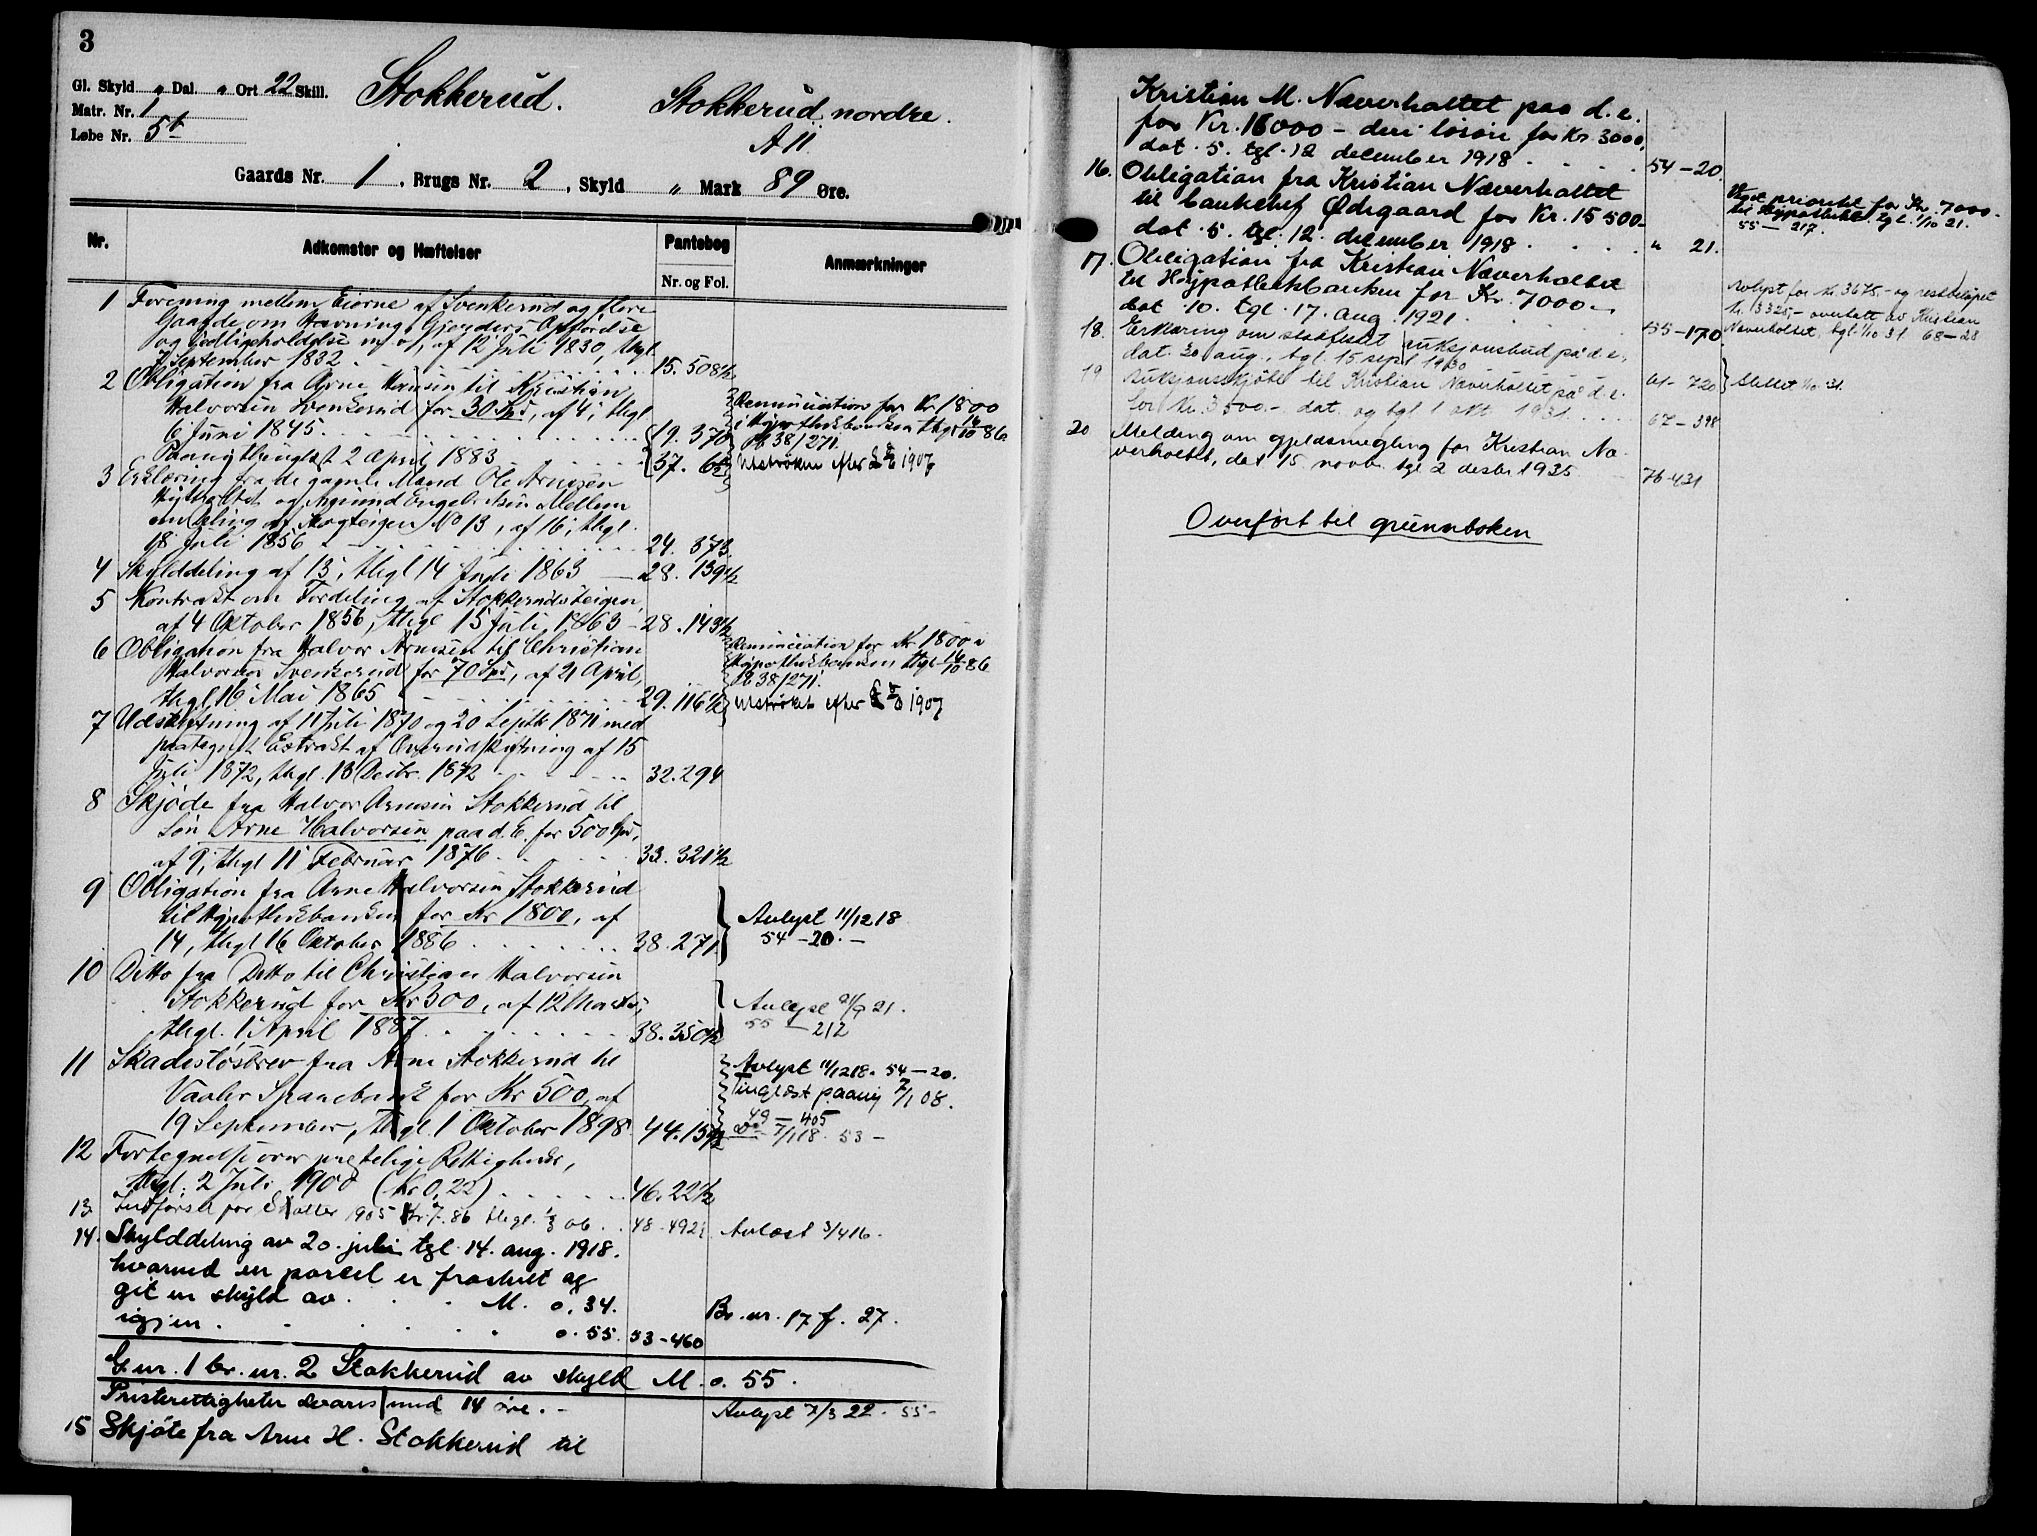 3
Gl. Skyld „ Dal. „ Ort 22 Skill.
Matr. Nr. 1
Løbe Nr. 5b
Stokkerud.
Stokkerud nordre.
A 11
Gaards Nr. 1, Brugs Nr. 2, Skyld „ Mark 89 Øre.
Nr. Adkomster og Hæftelser Pantebog Anmærkninger
Nr. og Fol.
1 Forening mellem Eierne af Svenkerud og flere
Gaarde om Havning, Gjerders Opførdse
og Vedligeholdelse m. v., af 12 Juli 1830, thgl.
7 September 1832 15. 508½
2 Obligation fra Arne Hansen til Kristian
Halvorsen Svenkerud for 30 Spd, af 4, thgl
6 Juni 1845 19. 370
Paany thinglæst 2 April 1883 37.
Renunciation for Kr 1800
i Hypothekbanken thgl 16/10 86
Pb 38/271.
Udstrøken efter 1907
3 Erklæring fra de gamle Mænd Ole Arnesen
og Amund Engebretsen Mellem
om Deling af Skogteigen No 13, af 16, thgl.
18 Juli 1856 24. 373.
4 Skylddeling af 13, thgl 14 Juli 1863 28. 139½
5 Kontrakt om Fordeling af Stokkerudsteigen,
af 4 Oktober 1856, thgl 15 Juli 1863 28. 143½
6 Obligation fra Halvor Arnesen til Christian
Halvorsen Svenkerud for 70 Spd, af 21 April,
thgl 16 Mai 1865 29. 116½
Renunciation for Kr 1800 i
Hypothekbanken thgl 16/10 86
Pb 38/271.
Udstrøket efter 1907
7 Udskiftning af 11 Juli 1870 og 20 Septb 1871 med
paategnet Extrakt af Overudskiftning af 15
Juli 1872, thgl. 13 Decbr. 1872 32. 294
8 Skjøde fra Halvor Arnesen Stokkerud til
Søn Arne Halvorsen paa d. E. for 500 Spd,
af 9, thgl 11 Februar 1876 33. 321½
9 Obligation fra Arne Halvorsen Stokkerud
til Hypothekbanken for Kr 1800, af
14, thgl 16 Oktober 1886 38. 271
Avlyst 11/12 18
54 – 20. –
10 Ditto fra Ditto til Christian Halvorsen
Stokkerud for Kr 300, af 12 Marts,
thgl. 1 April 1887 38. 350½
Avlyst 21/9 21.
55 – 212
11 Skadesløsbrev fra Arne Stokkerud til
Vaaler Sparebank for Kr 500, af
19 September, thgl. 1 Oktober 1898 44. 15½
Avlyst 11/12 18. 54 – 20.
Tinglæst paany 7/1 08.
49 – 405
Do 7/1 18. 53 –
12 Fortegnelse over prestelige Rettigheder,
thgl. 2 Juli 1900 (Kr 0,22) 46. 22½
13. Indførsel for Skatter 1905 Kr 7.86 thgl. 06 48 - 492½ Avlæst 3/4 16.
14. Skylddeling av 20. juli tgl. 14. aug. 1918.
hvorved en parcel er fraskilt og
git en skyld av M. 0,34. Br. nr. 17 f. 27.
igjen 0.55. 53 – 460
G. nr. 1 br. nr. 2 Stokkerud av skyld M. 0. 55.
Presterettigheter svares med 14 øre. – Avlyst 7/3 22. 55 –
15 Skjøte fra Arne H. Stokkerud til
Kristian M. Næverholtet paa d. e.
for Kr. 16000 – deri løsøre for Kr. 3000,
dat. 5. tgl. 12 december 1918 54 – 20.
16. Obligation fra Kristian Næverholtet
til bankchef Ødegaard for Kr. 15 500 –
dat. 5. tgl. 12. december 1918 „ 21.
Veget prioritet for Kr. 7000 –
til Hypotheket tgl. 1/10 21.
55 – 217.
17. Obligation fra Kristian Næverholtet
til Hypothekbanken for Kr. 7000 –
dat. 10. tgl. 17. aug. 1921 55 – 170
Avlyst for kr. 3675,– og restbeløpet
kr. 3325,– overtatt av Kristian
Næverholtet, tgl. 1/10 31. 68 – 28
18. Erklæring om stadfestet auksjonsbud på d. e.,
dat. 30 aug., tgl. 15 sept 1930 61 – 720 Slettet 1/10 31.
19 Auksjonsskjøte til Kristian Næverholtet på d. e.
for Kr. 3500.– dat. og tgl. 1 okt. 1931 67 – 398
20 Melding om gjeldsmegling for Kristian Næ-
verholtet, dat 15. novbr. tgl 2 desbr. 1935 76 - 431
Overført til grunnboken